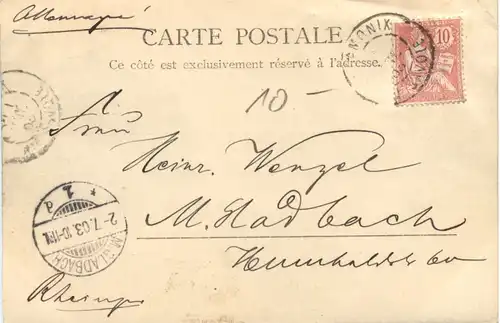 Allemagne
CARTE POSTALE
Ce côté est exclusivement réservé à l'adresse.
10
10-
Frau
Heinr. Wenzel
M. Gladbach
Humboldstr 60
2.7.03.10-11N.
M. GLADBACH